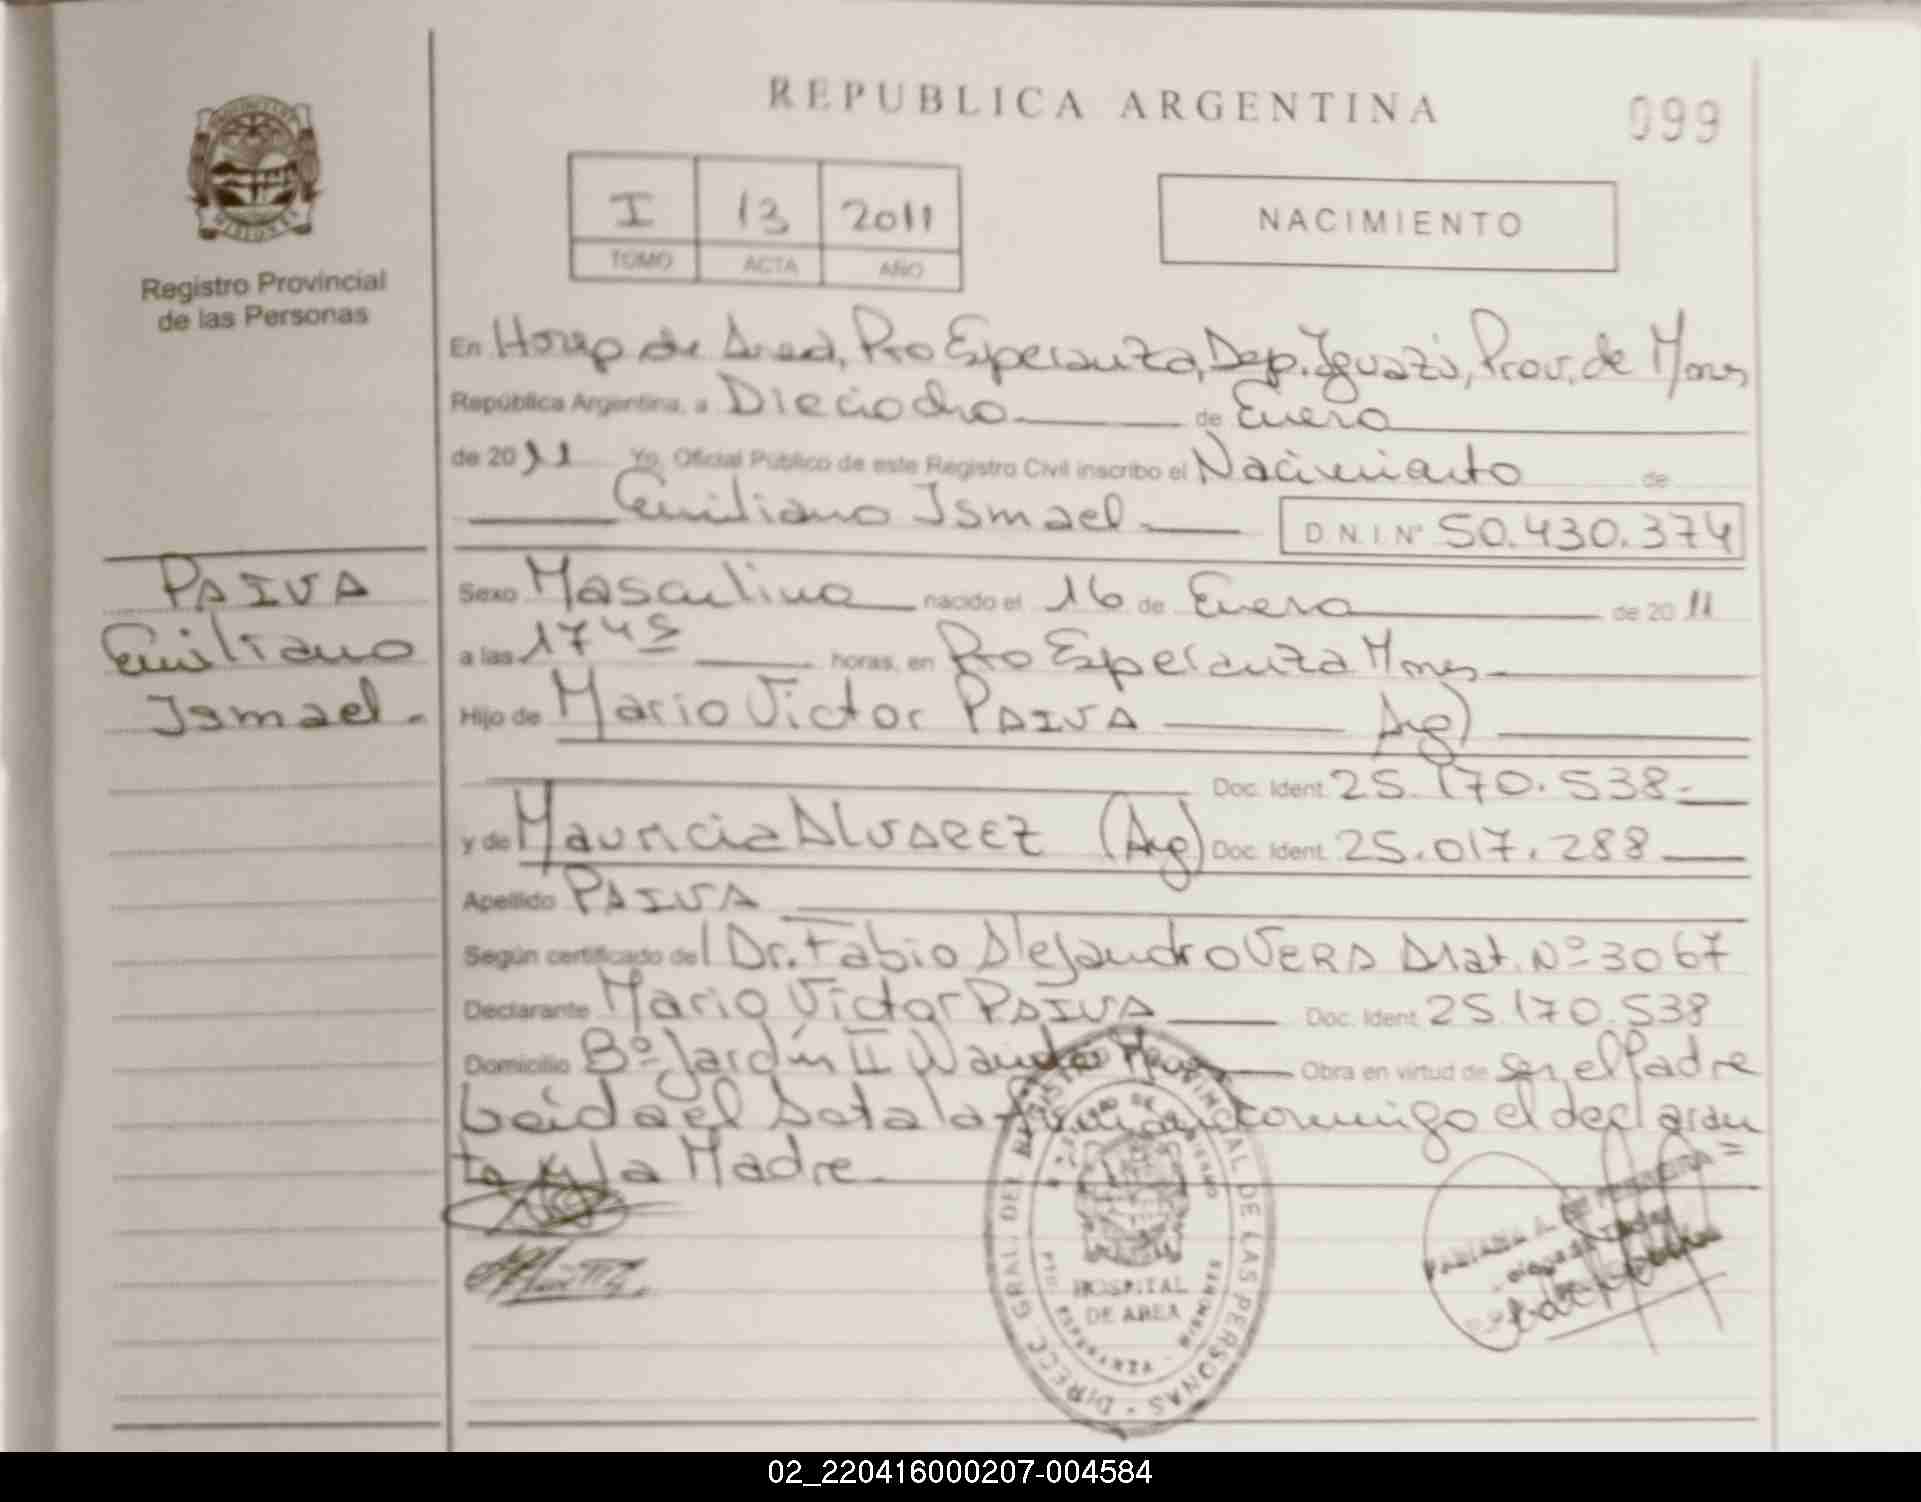 REPUBLICA ARGENTINA
099
I 13 2011
TOMO ACTA AÑO
NACIMIENTO
Registro Provincial
de las Personas
En Hosp de Area, Pto Esperanza, Dep. Iguazú, Prov. de Mnes
República Argentina, a Dieciocho de Enero
de 2011 Yo, Oficial Público de este Registro Civil inscribo el Nacimiento de
Emiliano Ismael D.N.I.Nº 50.430.374
PAIVA
Emiliano
Ismael.
Sexo Masculino nacido el 16 de Enero de 2011
a las 1745 horas, en Pto Esperanza Mnes
Hijo de Mario Victor PAIVA Arg)
Doc. Ident. 25.170.538.
y de Mauricia ALVAREZ (Arg) Doc. Ident. 25.017.288
Apellido PAIVA
Según certificado del Dr. Fabio Alejandro VERA Mat. Nº 3067
Declarante Mario Victor PAIVA Doc. Ident. 25.170.538
Domicilio Bº Jardín II Wanda Obra en virtud de ser el Padre
Leida el Acta la firman conmigo el declaran
te y la Madre
DIRECC. GRAL. DEL REGISTRO PROVINCIAL DE LAS PERSONAS
HOSPITAL
DE AREA
02_220416000207-004584